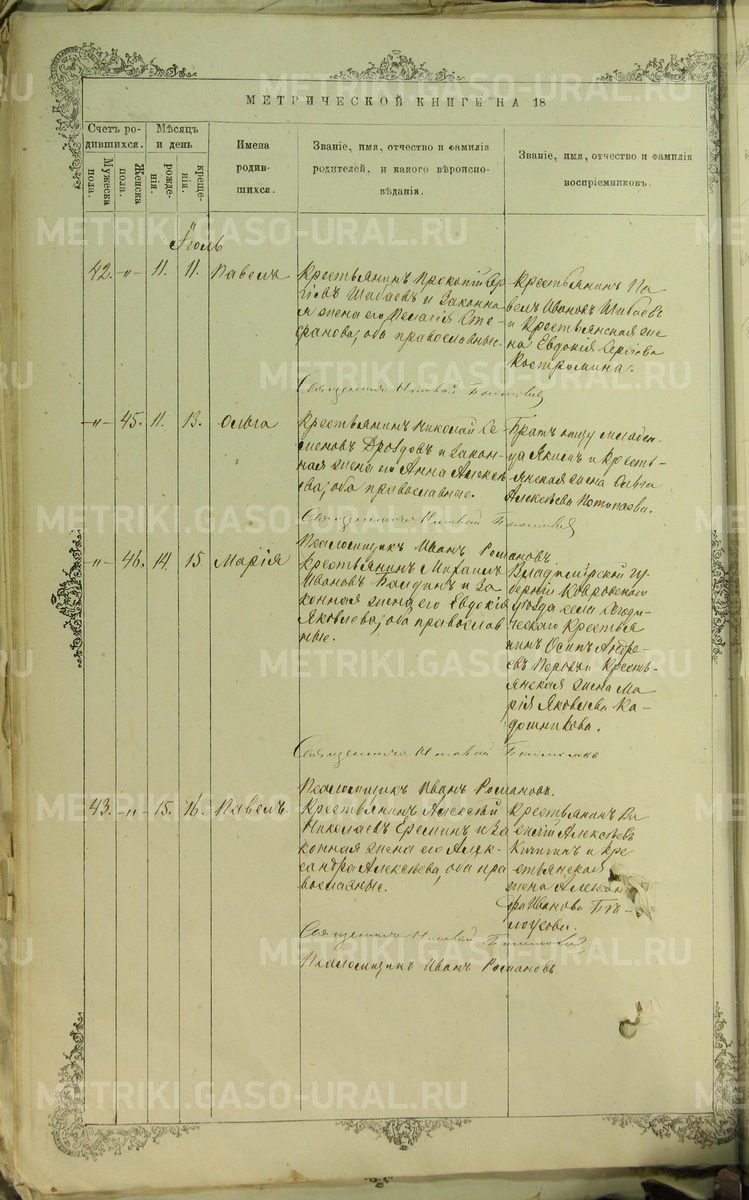 МЕТРИЧЕСКОЙ КНИГИ НА 18
Счетъ ро-
дившихся.
Мужеска
пола.
Женска
пола.
Мѣсяцъ
и день
рожде-
нія.
креще-
нія.
Имена
родив-
шихся.
Званіе, имя, отчество и фамилія
родителей, и какого вѣроиспо-
вѣданія.
Званіе, имя, отчество и фамилія
воспріемниковъ.
Іюль
42. -"- 11. 11. Павелъ
Крестьянинъ Прокопій Сер
гіевъ Шабаевъ и законна
я жена его Пелагія Сте-
фанова; оба православные.
Крестьянинъ Па
велъ Ивановъ Шабаевъ
и Крестьянская же
на Евдокія Сергіева
Костромина.
Священникъ
-"- 45. 11. 13. Ольга
Крестьянинъ Николай Се
меновъ Дроздовъ и закон-
ная жена его Анна Алексѣ
ева; оба православные.
Братъ отцу младен-
ца Якимъ и Кресть-
янская жена Ольга
Алексѣева Потапова.
Священникъ
Псаломщикъ Иванъ Романовъ.
-"- 46. 14. 15 Марія
Крестьянинъ Михаилъ
Ивановъ Балдинъ и за
конная жена его Евдокія
Яковлева; оба православ
ные.
Владимірской гу
берніи Ковровскаго
уѣзда села
Крестья
нинъ Осипъ Андре-
евъ и Кресть-
янская жена Ма
рія Яковлева Ка-
дошникова.
Священникъ
Псаломщикъ Иванъ Романовъ.
43. -"- 15. 16. Павелъ
Крестьянинъ Алексѣй
Николаевъ Ереминъ и за
конная жена его Алек-
сандра Алексѣева; оба пра
вославные.
Крестьянинъ
Алексѣевъ
и Кре
стьянская
жена
Иванова Бѣ-
лоусова.
Священникъ
Псаломщикъ Иванъ Романовъ.
METRIKI.GASO-URAL.RU